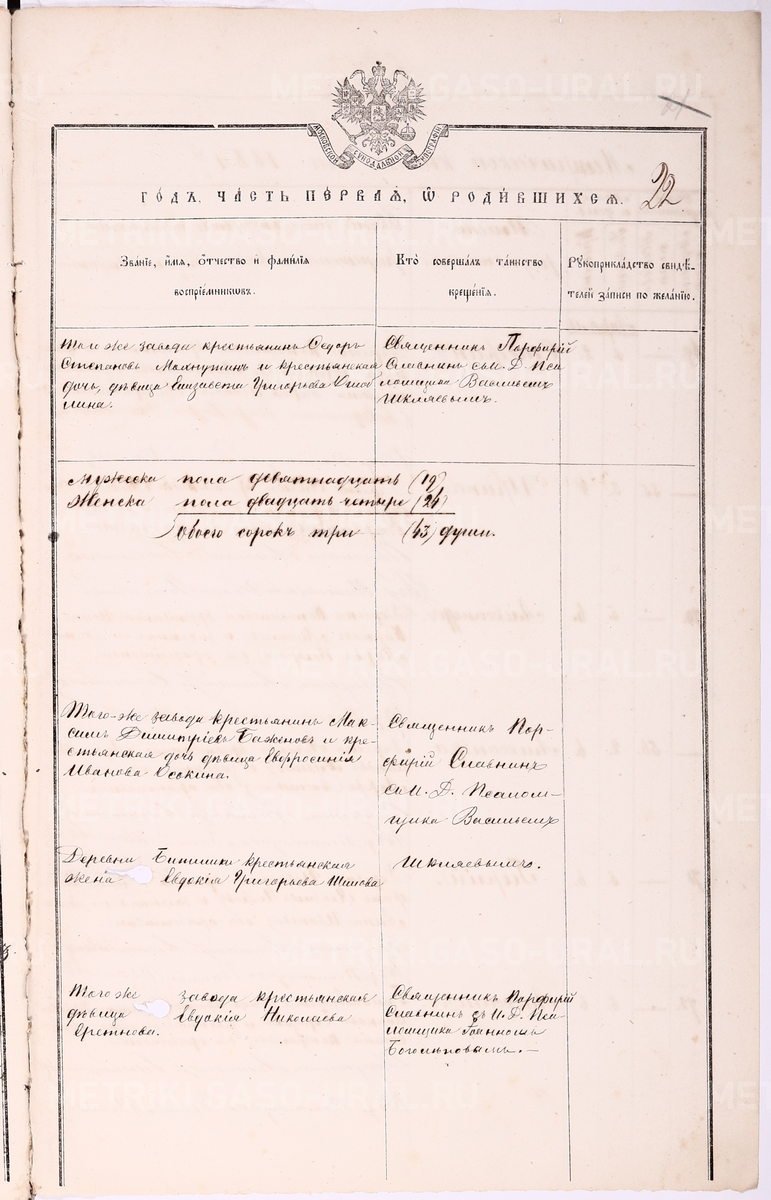 METRIKI.GASO-URAL.RU
МОСКОВСКОЙ СѴНОДАЛЬНОЙ ТИПОГРАФІИ
22
ГОДЪ. ЧАСТЬ ПЕРВАЯ, Ѿ РОДИВШИХСЯ.
Званіе, имя, отчество и фамилія
воспріемниковъ.
Кто совершалъ таинство
крещенія.
Рукоприкладство свидѣ-
телей записи по желанію.
Того же завода крестьянинъ Ѳедоръ
Степановъ и крестьянская
дочь, дѣвица Елизавета Григорьева
лина.
Священникъ Порфирій
Славнинъ съ И. Д. Пса
ломщика Васильемъ
Шкляевымъ.
Мужеска пола девятнадцать (19)
Женска пола двадцать четыре (24)
Обоего сорокъ три (43) души.
Того-же завода крестьянинъ Мак-
симъ Димитріевъ Баженовъ и кре-
стьянская дочь дѣвица Евфросинія
Иванова Осокина.
Священникъ Пор-
фирій Славнинъ
съ И. Д. Псалом-
щика Васильемъ
Шкляевымъ.
Деревни крестьянская
жена Евдокія Григорьева Шилова
Того же завода крестьянская
дѣвица Евдокія Николаева
Священникъ Порфирій
Славнинъ съ И. Д. Пса-
ломщика Іоанномъ
Боголѣповымъ. —